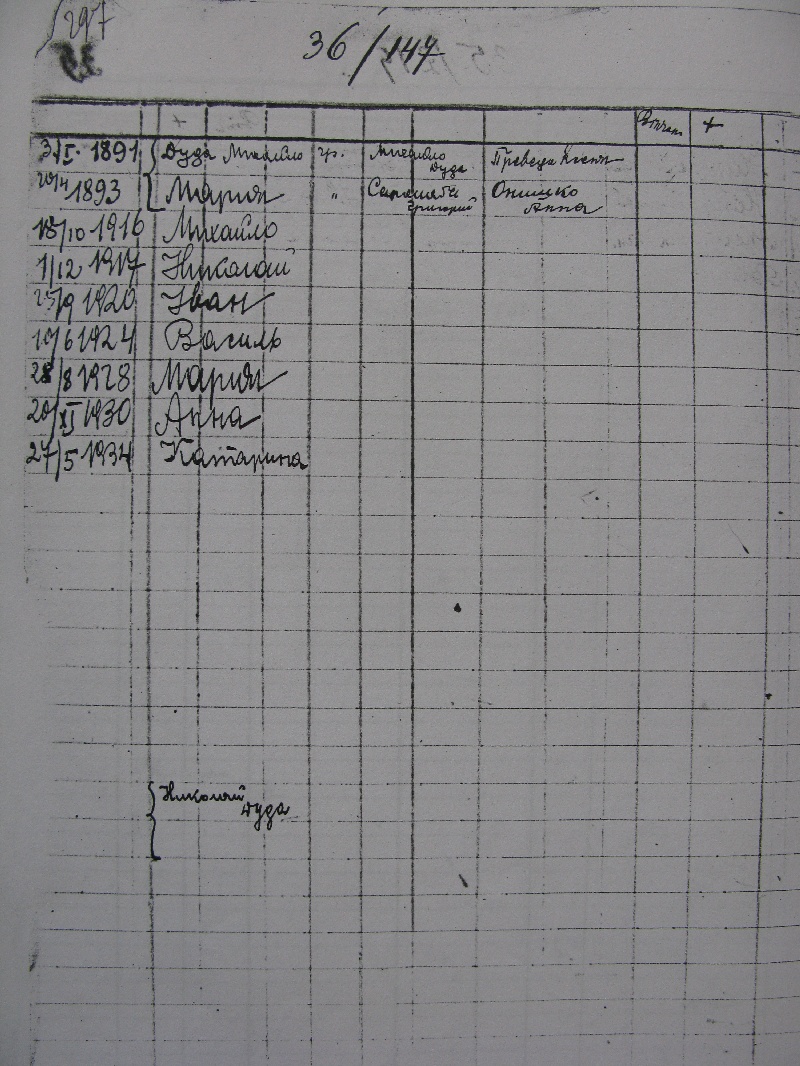 297
36/147
+ Вѣнчан. +
3/I. 1891 Дуда Михайло гр. Михайло Дуда
20/4 1893 Мария " Григорий Онишко Анна
18/10 1916 Михайло
1/12 1917 Николай
25/9 1920 Іван
10/6 1924 Василь
28/8 1928 Мария
20/XI 1930 Анна
27/5 1934 Катарина
Николай Дуда